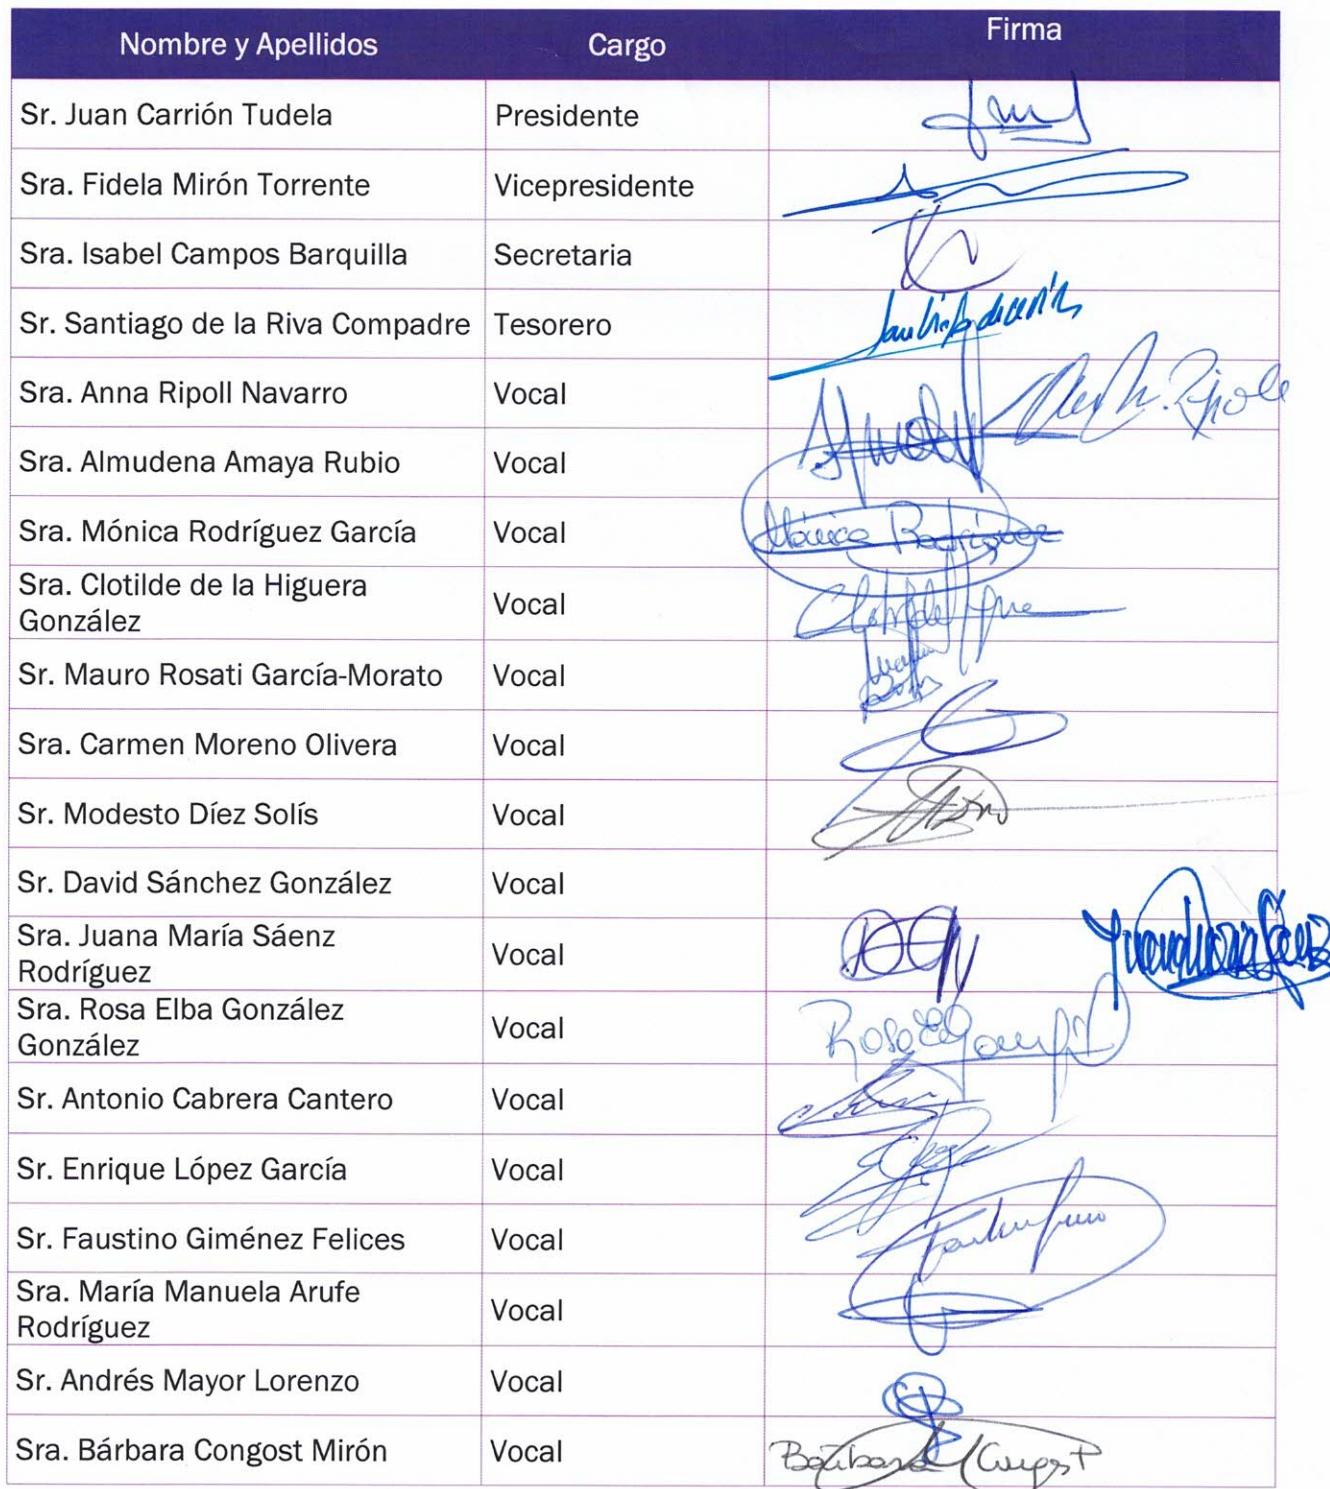 Nombre y Apellidos Cargo Firma
Sr. Juan Carrión Tudela Presidente
Sra. Fidela Mirón Torrente Vicepresidente
Sra. Isabel Campos Barquilla Secretaria
Sr. Santiago de la Riva Compadre Tesorero
Sra. Anna Ripoll Navarro Vocal
Sra. Almudena Amaya Rubio Vocal
Sra. Mónica Rodríguez García Vocal Mónica Rodríguez
Sra. Clotilde de la Higuera
González Vocal
Sr. Mauro Rosati García-Morato Vocal
Sra. Carmen Moreno Olivera Vocal
Sr. Modesto Díez Solís Vocal
Sr. David Sánchez González Vocal
Sra. Juana María Sáenz
Rodríguez Vocal
Sra. Rosa Elba González
González Vocal
Sr. Antonio Cabrera Cantero Vocal
Sr. Enrique López García Vocal
Sr. Faustino Giménez Felices Vocal
Sra. María Manuela Arufe
Rodríguez Vocal
Sr. Andrés Mayor Lorenzo Vocal
Sra. Bárbara Congost Mirón Vocal Bárbara